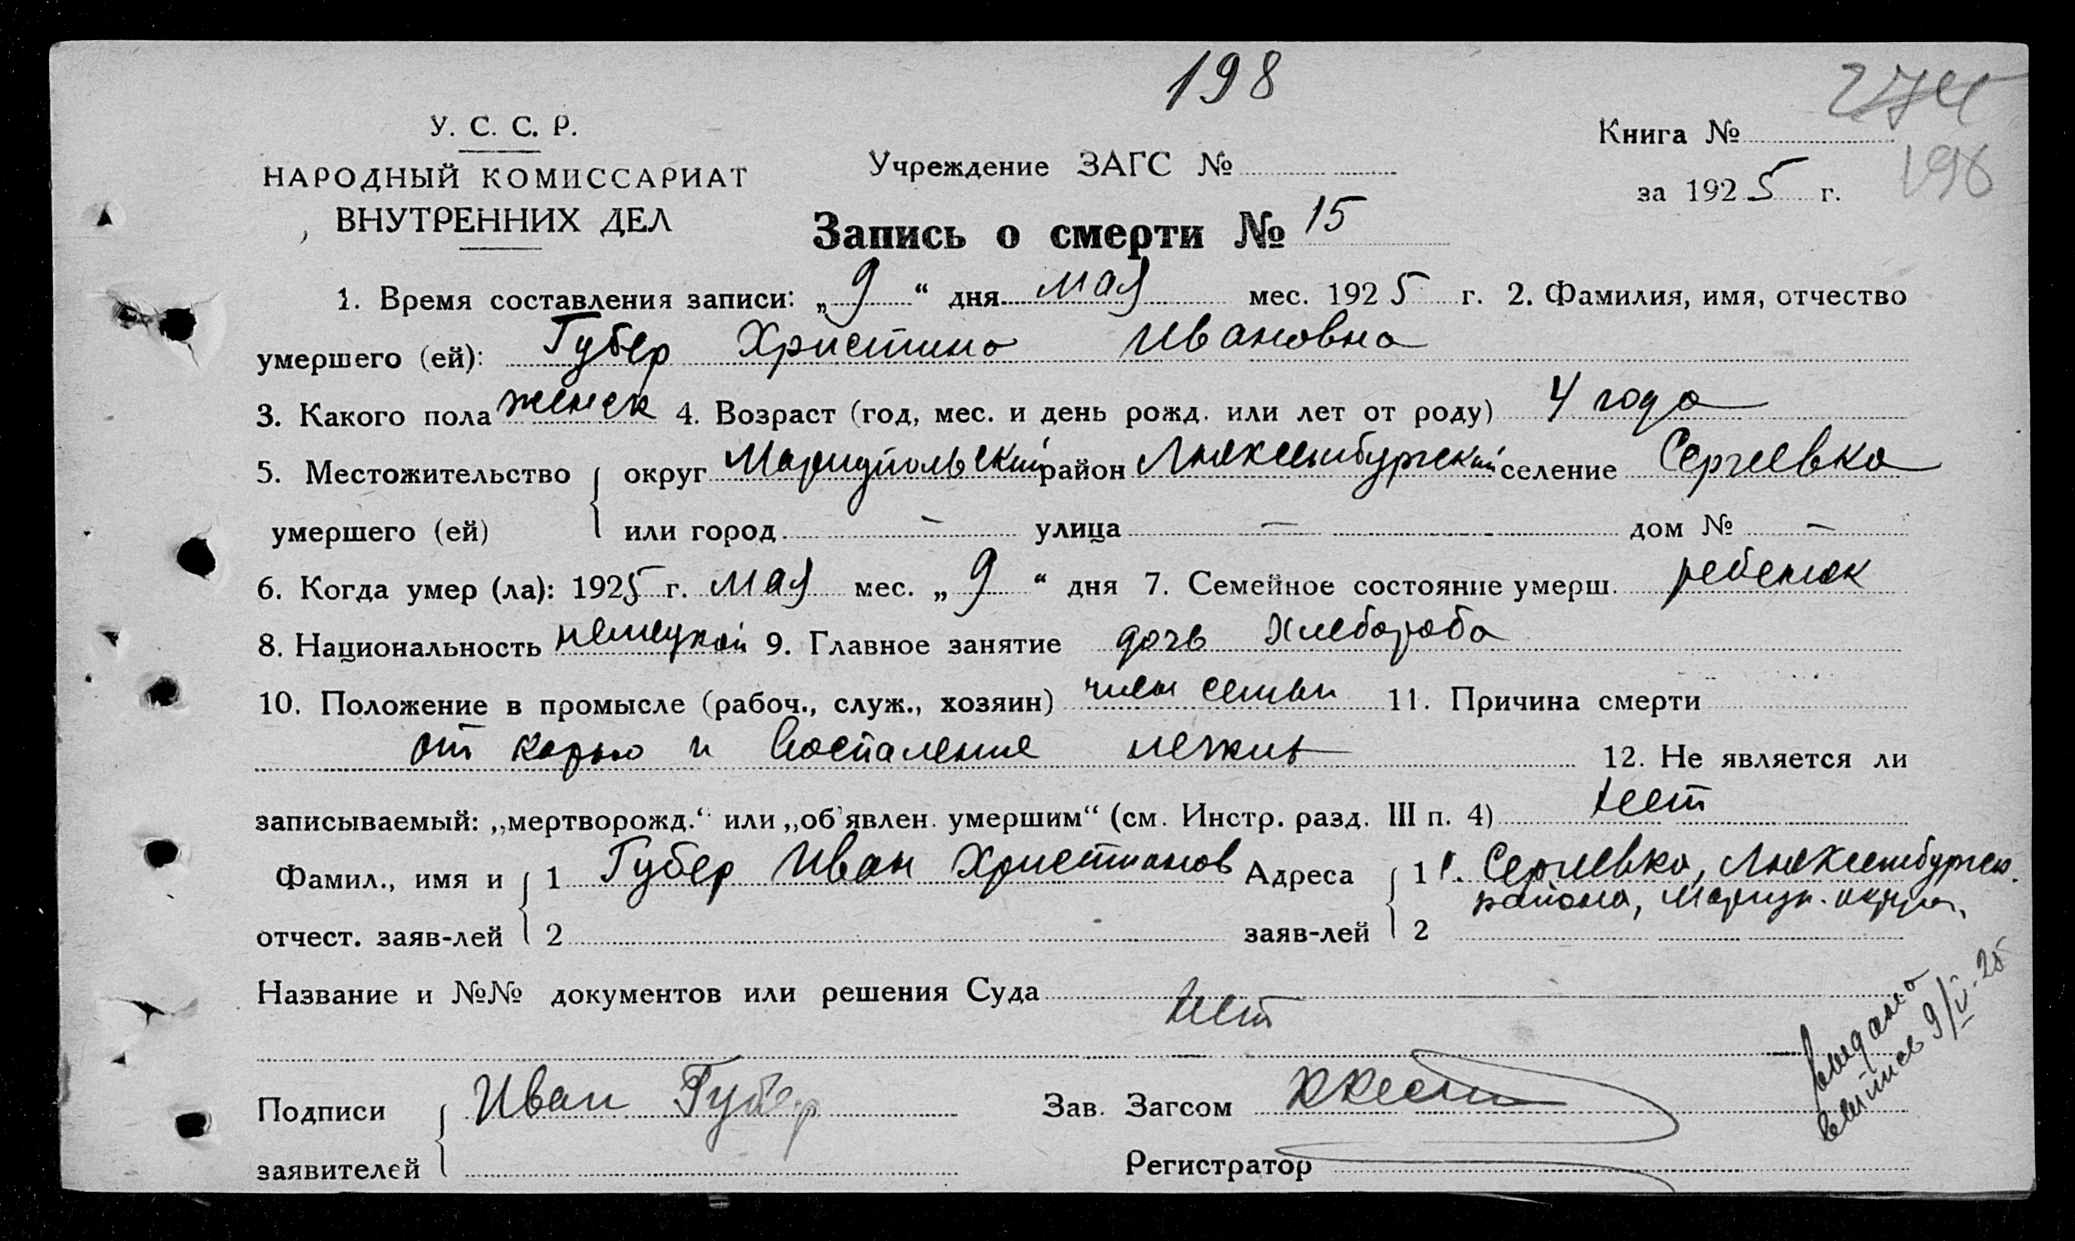 198
274
У. С. С. Р.
Книга №
196
НАРОДНЫЙ КОМИССАРИАТ
Учреждение ЗАГС №
за 1925 г.
ВНУТРЕННИХ ДЕЛ
Запись о смерти № 15
1. Время составления записи: „9“ дня мая мес. 1925 г. 2. Фамилия, имя, отчество
умершего (ей): Губер Христина Ивановна
3. Какого пола женск 4. Возраст (год, мес. и день рожд. или лет от роду) 4 года
5. Местожительство округ Мариупольский район Люксембургский селение Сергеевка
умершего (ей) или город — улица — дом № —
6. Когда умер (ла): 1925 г. мая мес. „9“ дня 7. Семейное состояние умерш. ребенок
8. Национальность немецкой 9. Главное занятие дочь хлебороба
10. Положение в промысле (рабоч., служ., хозяин) член семьи 11. Причина смерти
от корью и воспаление
12. Не является ли
записываемый: „мертворожд.“ или „об'явлен. умершим“ (см. Инстр. разд. III п. 4) нет
Фамил., имя и 1 Губер Иван Христианов Адреса 1 с. Сергеевка, Люксембургск.
района, Мариуп. округа,
отчест. заяв-лей 2 заяв-лей 2
Название и №№ документов или решения Суда
нет
Выдано
выпись 9/V-25
Подписи Иван Губер Зав. Загсом
заявителей Регистратор